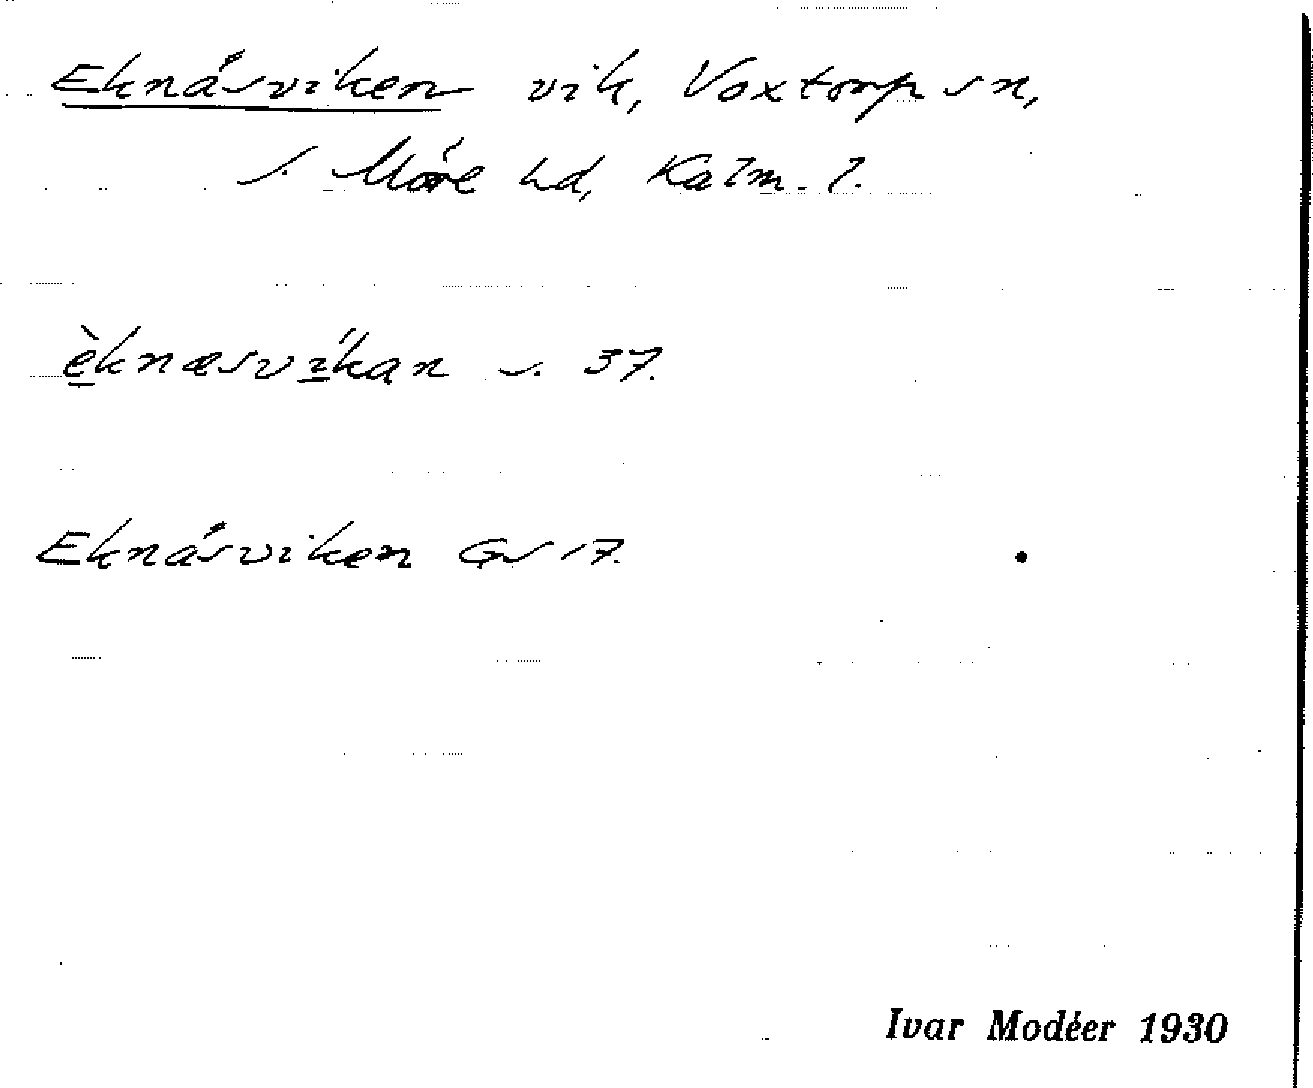 Eknäsviken vik, Voxtorp sn,
s. Möre hd, Kalm. l.
èknæsvíkan s. 37.
Eknäsviken GS 17.
Ivar Modéer 1930